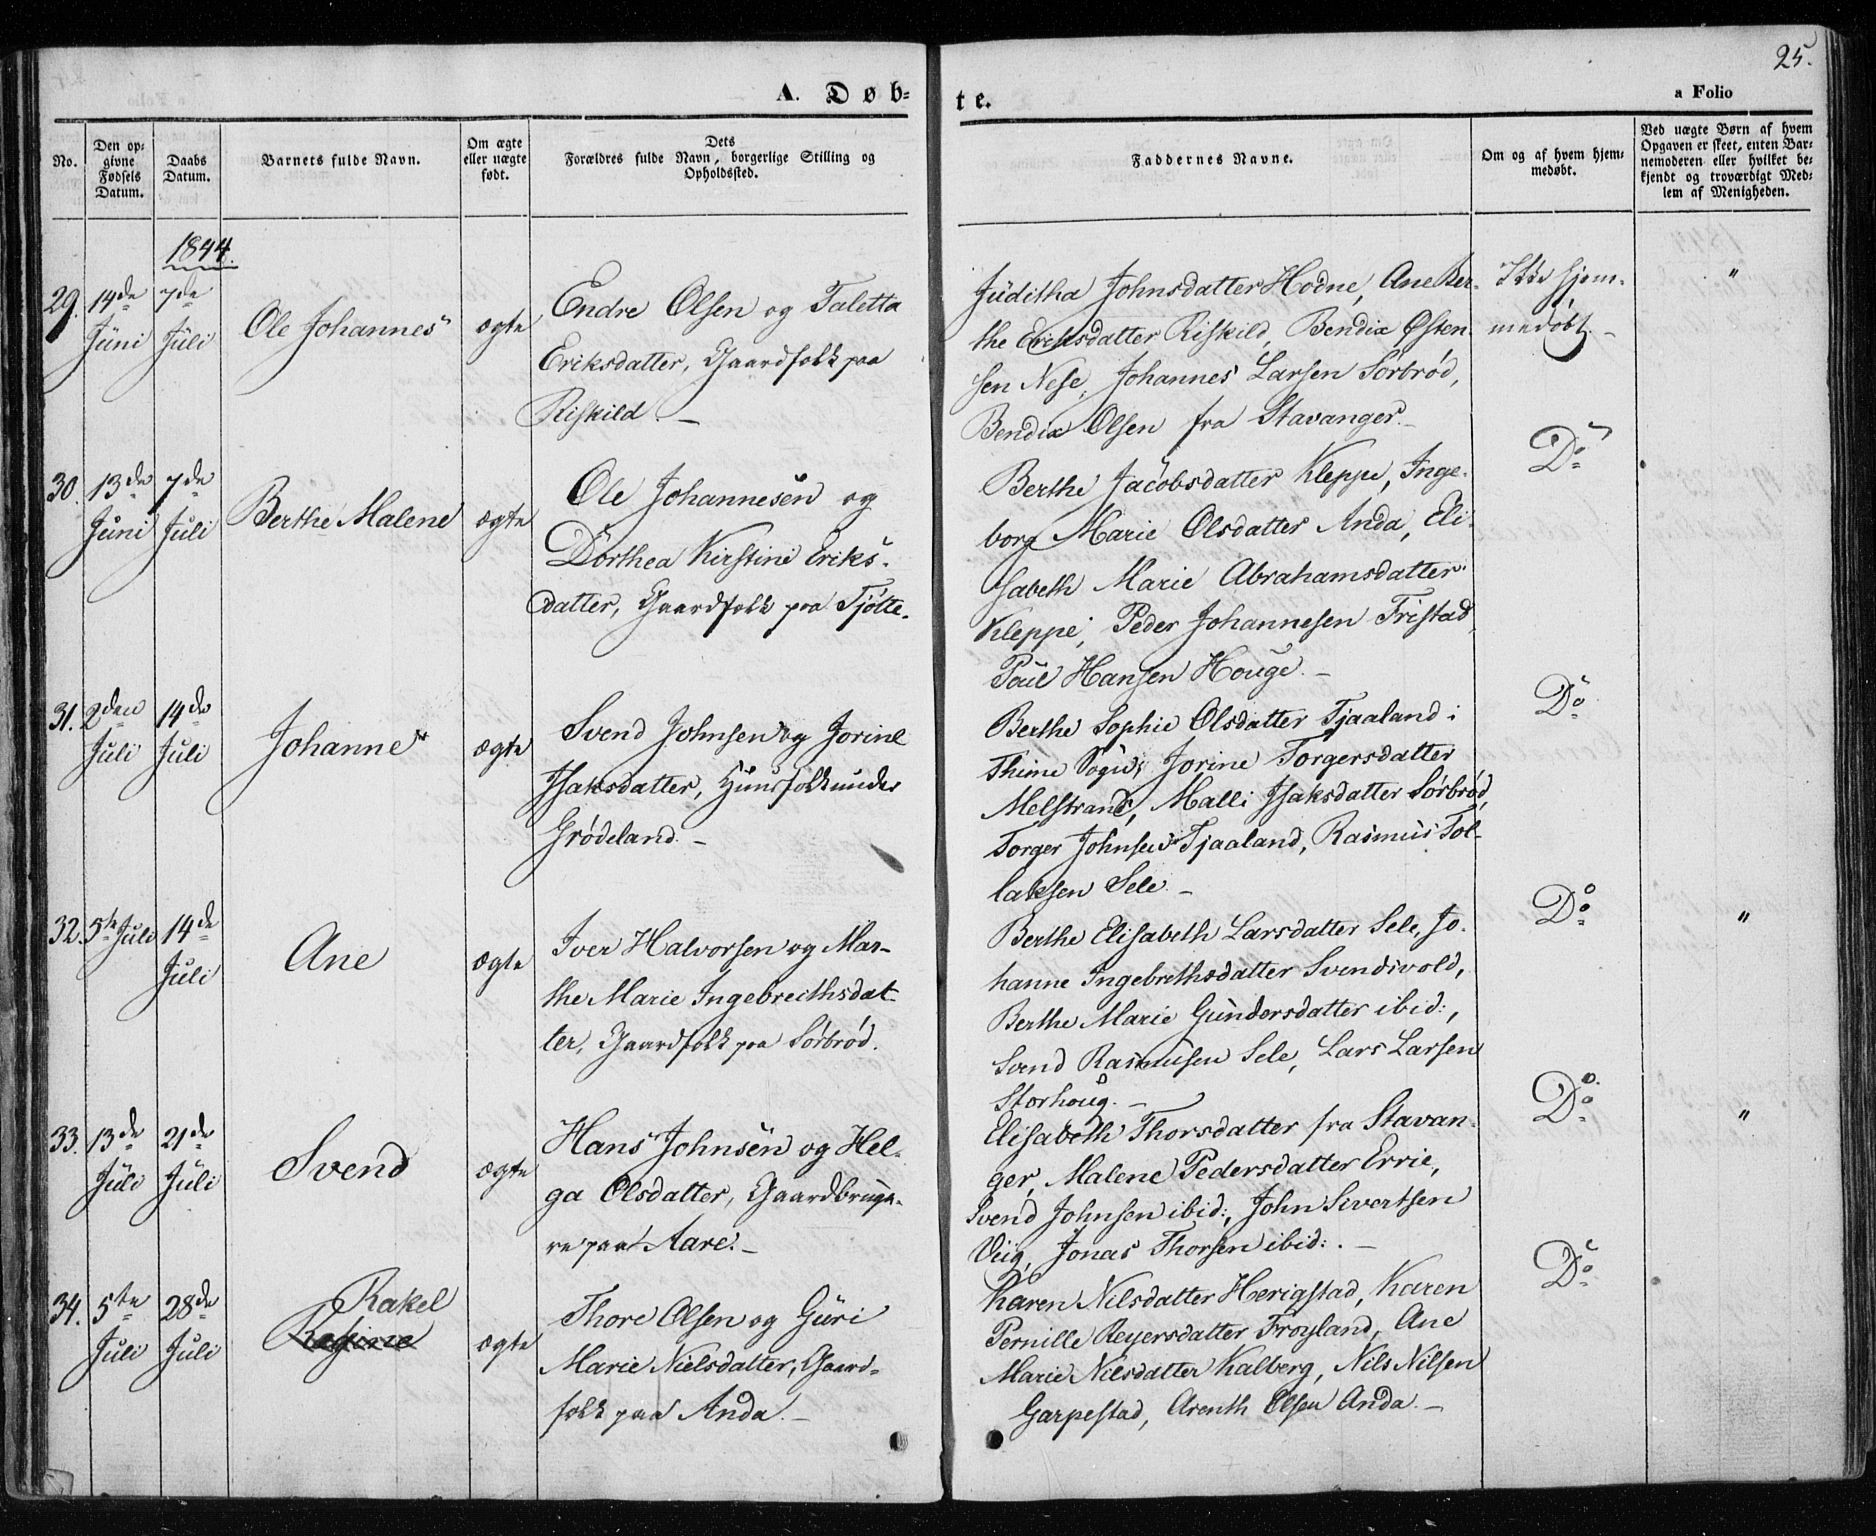 25.
A. Døb-
te.
a Folio
No.
Den op-
givne
Fødsels
Datum.
Daabs
Datum.
Barnets fulde Navn.
Om ægte
eller uægte
født.
Dets
Forældres fulde Navn, borgerlige Stilling og
Opholdssted.
Faddernes Navne.
Om og af hvem hjem-
medøbt.
Ved uægte Børn af hvem
Opgaven er skeet, enten Bar-
nemoderen eller hvilket be-
kjendt og troværdigt Med-
lem af Menigheden.
1844.
29.
14de
Juni
7de
Juli
Ole Johannes
ægte
Endre Olsen og Taletta
Eriksdatter, Gaardfolk paa
Riskild. –
Juditha Johnsdatter Hodne, Ane Ber-
the Eriksdatter Riskild, Bendix Østen-
sen Nese, Johannes Larsen Sørbrød,
Bendix Olsen fra Stavanger. –
Ikke hjem-
medøbt. –
"
30.
13de
Juni
7de
Juli
Berthe Malene
ægte
Ole Johannesen og
Dorthea Kirstine Eriks-
datter, Gaardfolk paa Tjøtte.
Berthe Jacobsdatter Kleppe, Inge-
borg Marie Olsdatter Anda, Eli-
sabeth Marie Abrahamsdatter
Kleppe, Peder Johannesen Fristad,
Poul Hansen Houge. –
Do
31.
2den
Juli
14de
Juli
Johanne
ægte
Svend Johnsen og Jorine
Isaksdatter, Huusfolk under
Grødeland. –
Berthe Sophie Olsdatter Tjaaland i
Thime Sogn, Jorine Torgersdatter
Melstrand, Malli Isaksdatter Sørbrød,
Torger Johnsen Tjaaland, Rasmus Tol-
laksen Sele. –
Do
32.
5te Juli
14de
Juli
Ane
ægte
Iver Halvorsen og Mar-
the Marie Ingebreithsdat-
ter, Gaardfolk paa Sørbrød.
Berthe Elisabeth Larsdatter Sele, Jo-
hanne Ingebrethsdatter Svendsvold,
Berthe Marie Gundersdatter ibid:,
Svend Rasmusen Sele, Lars Larsen
Storhoug. –
Do
"
33.
13de
Juli
21de
Juli
Svend
ægte
Hans Johnsen og Hel-
ga Olsdatter, Gaardbruge-
re paa Aare. –
Elisabeth Thorsdatter fra Stavan-
ger, Malene Pedersdatter Errie,
Svend Johnsen ibid:, John Sivertsen
Viig, Jonas Thorsen ibid:. –
Do
"
34.
5te
Juli
28de
Juli
Rakel
ægte
Thore Olsen og Guri
Marie Nielsdatter, Gaard-
folk paa Anda. –
Karen Nilsdatter Herigstad, Karen
Pernille Reyersdatter Frøyland, Ane
Marie Nilsdatter Kalberg, Nils Nilsen
Garpestad, Arenth Olsen Anda. –
Do